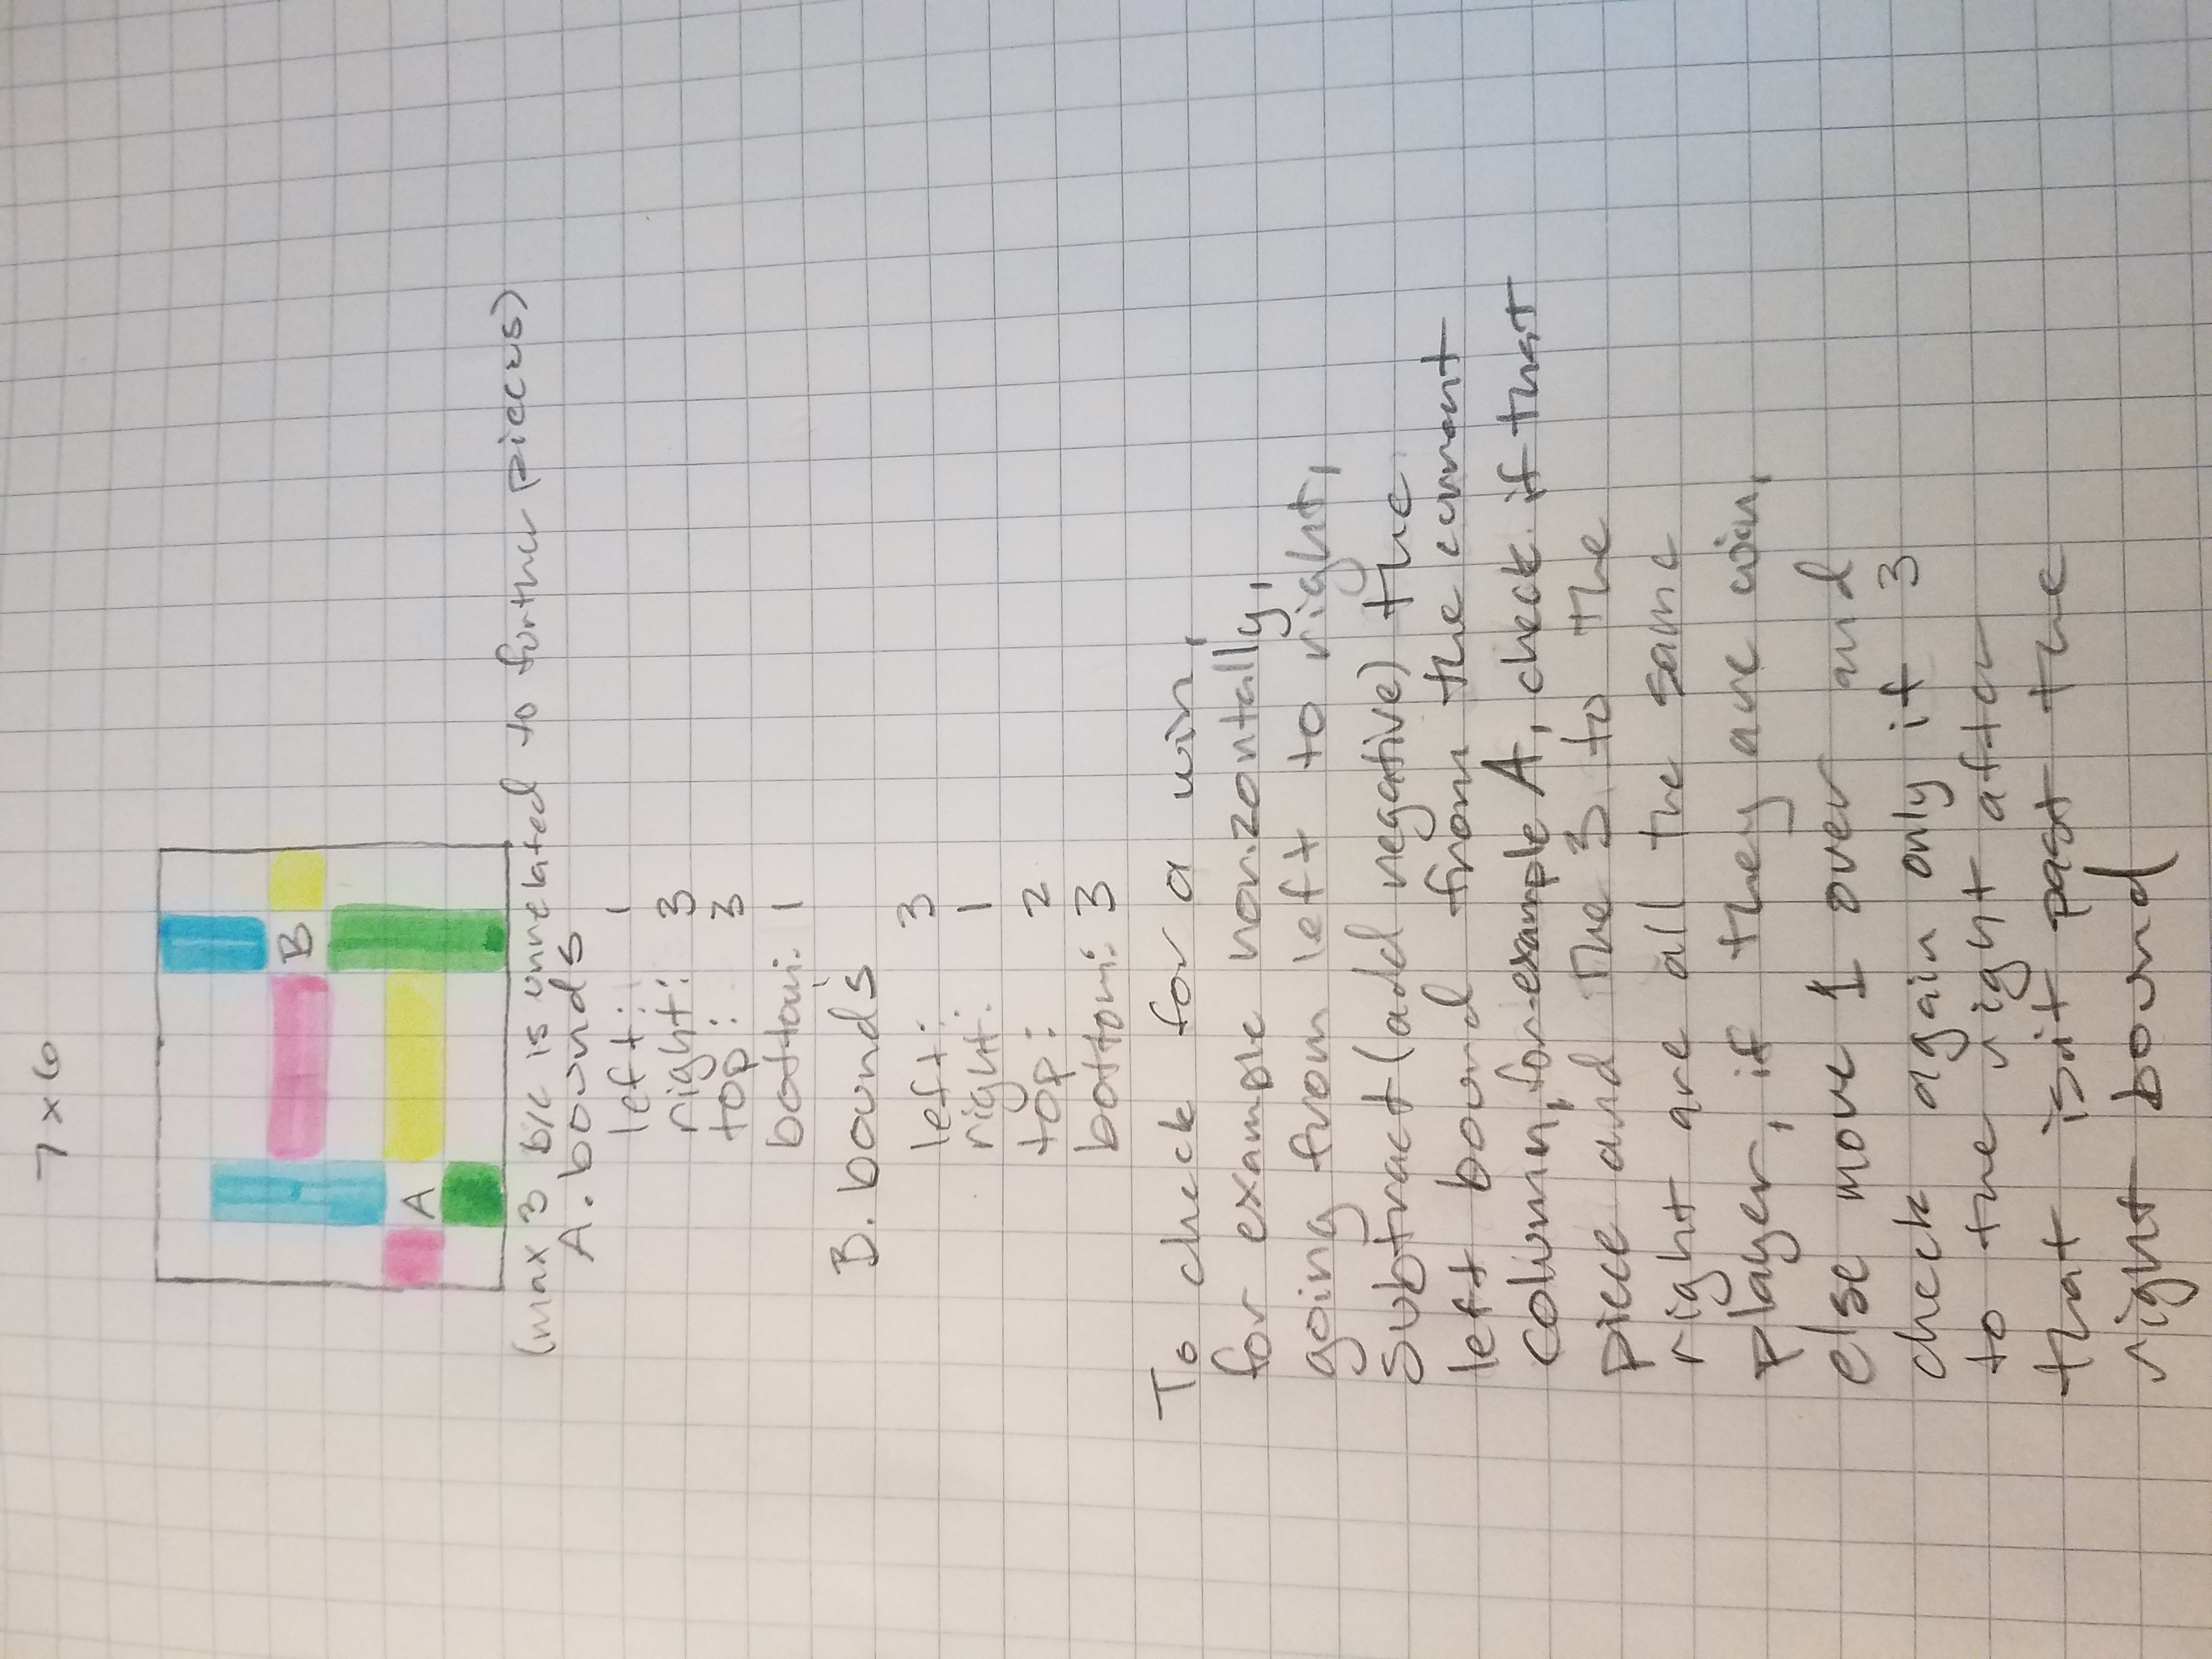 7 x 6
B
A
(max 3 b/c is unrelated to further pieces)
A. bounds
left: 1
right: 3
top: 3
bottom: 1
B. bounds
left: 3
right: 1
top: 2
bottom: 3
To check for a win,
for example horizontally,
going from left to right,
subtract (add negative) the
left bound from the current
column, for example A, check if that
piece and the 3 to the
right are all the same
player, if they are win,
else move 1 over and
check again only if 3
to the right after
that isn't past the
right bound